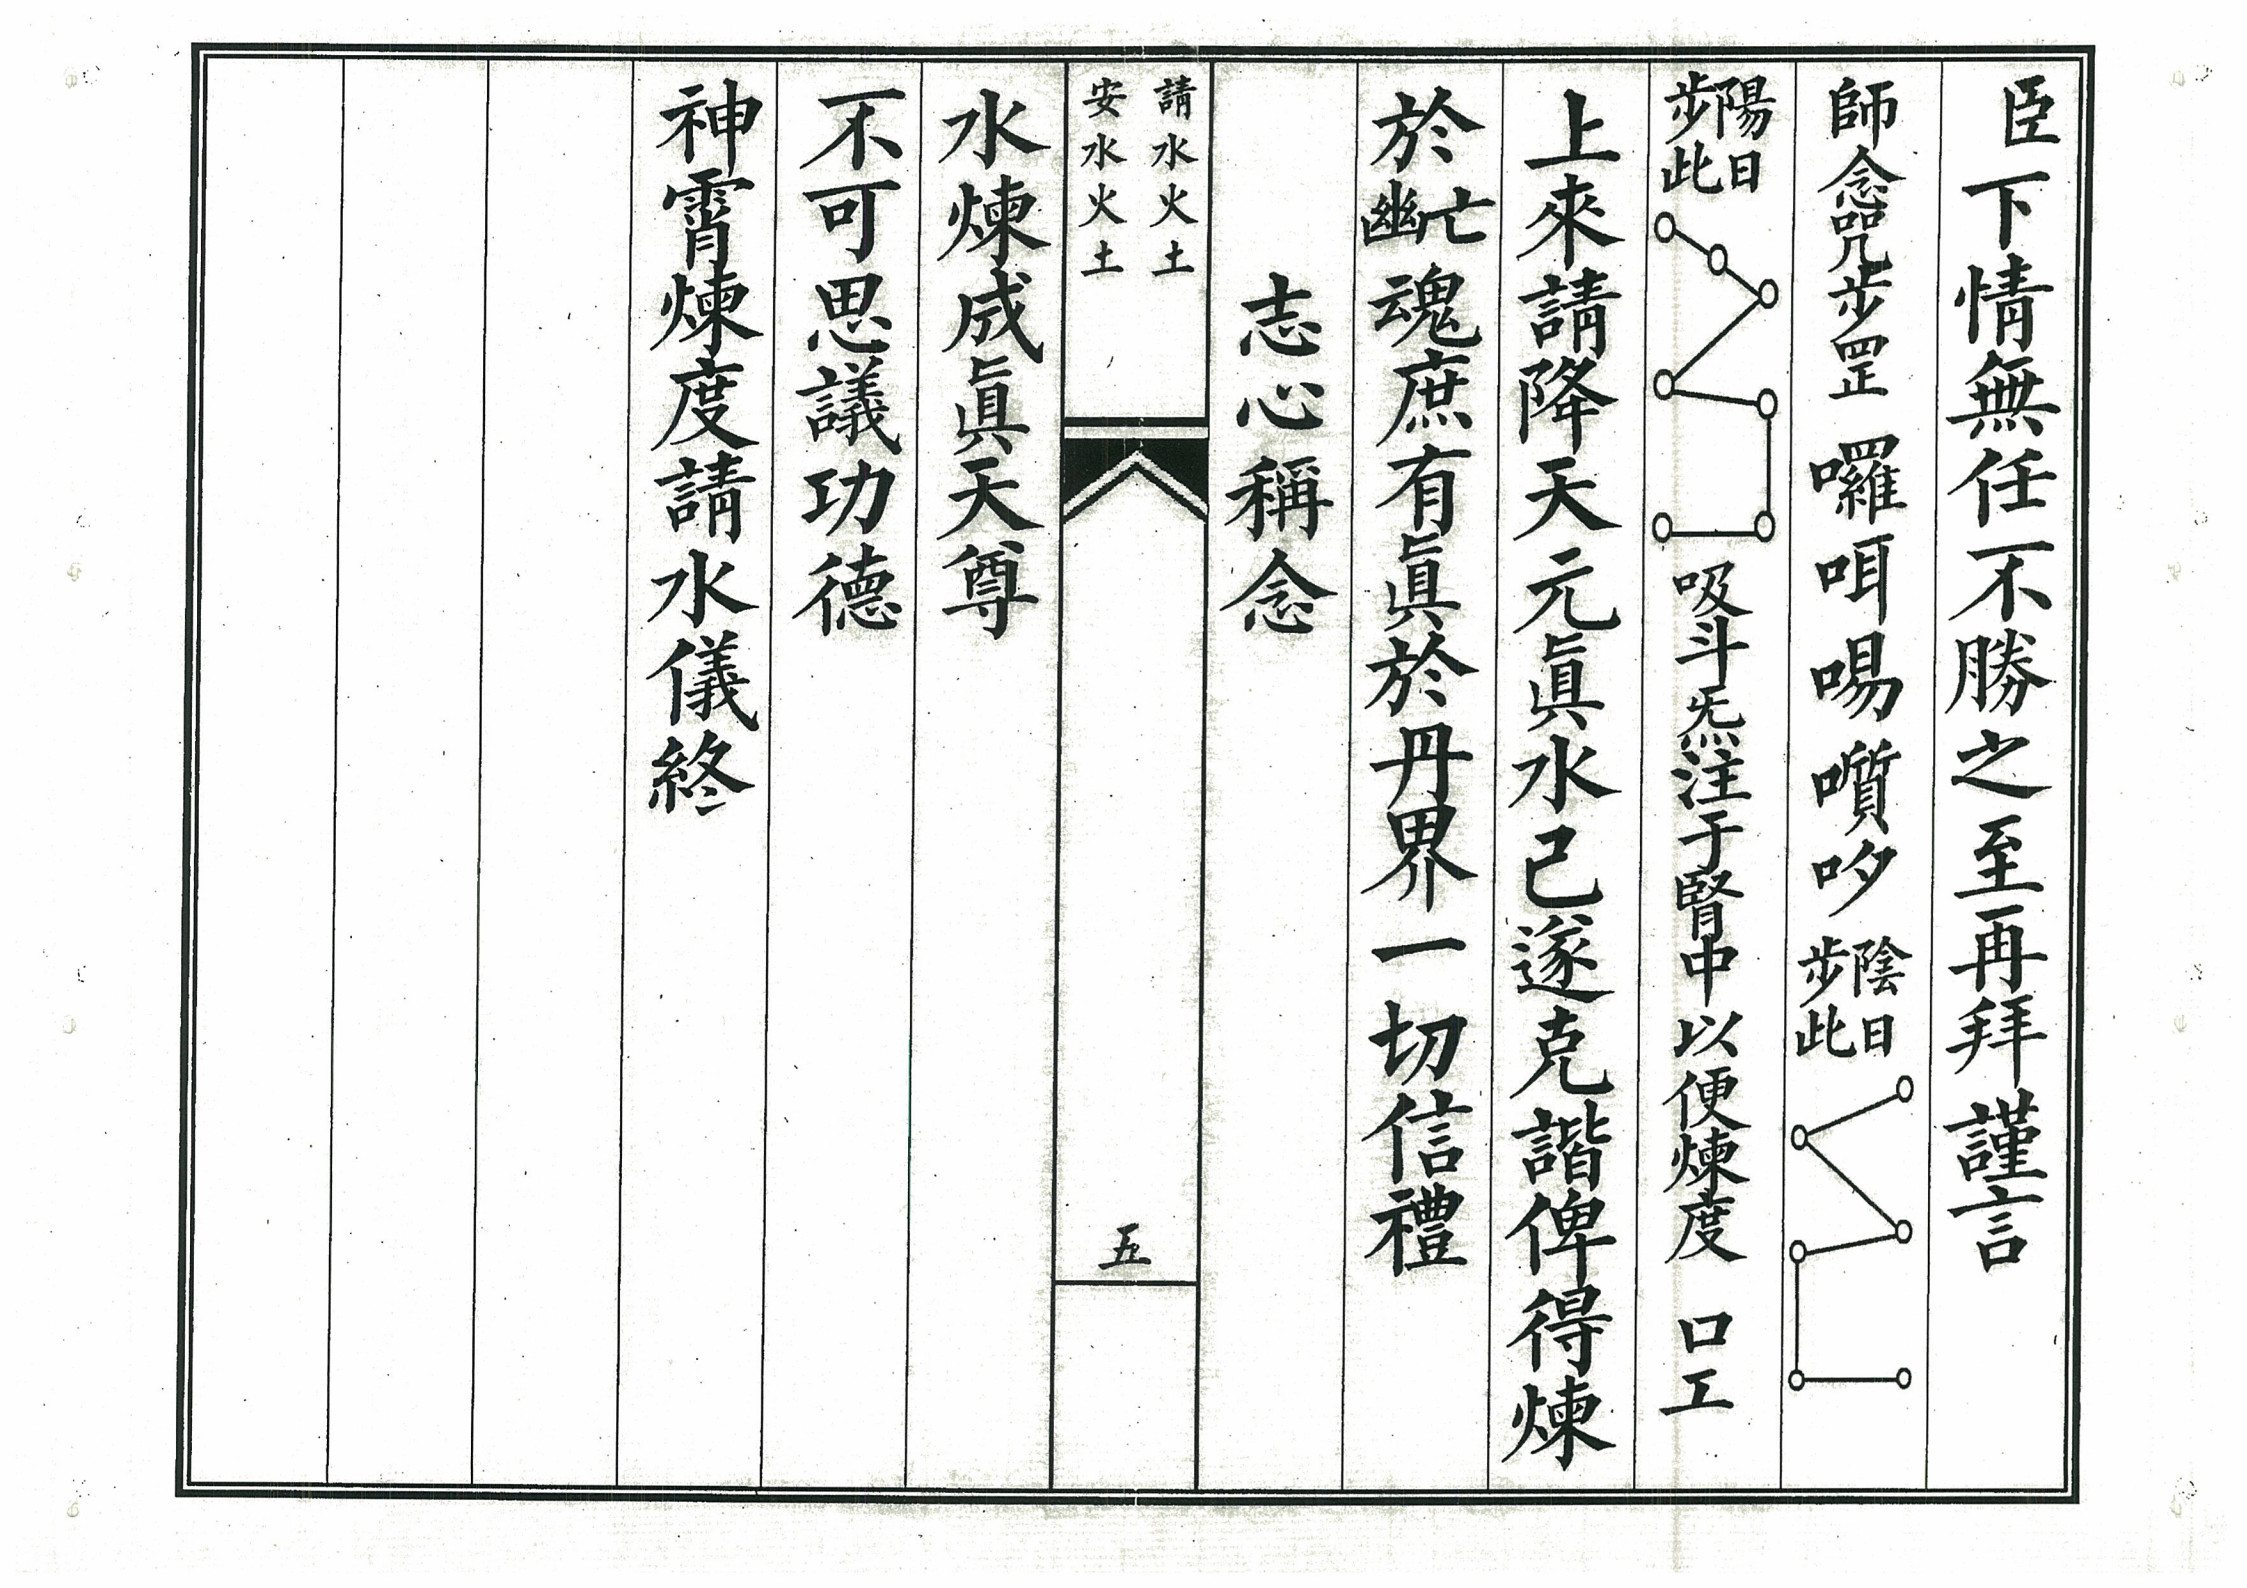 臣下情無任不勝之至再拜謹言
師念咒步罡　囉咡喝嚽哆　陰日步此
陽日步此　吸斗炁注于腎中以便煉度　口工
上來請降天元眞水已遂克諧俾得煉
於幽亡魂庶有眞於丹界一切信禮
志心稱念
請水火土
安水火土
五
水煉成眞天尊
不可思議功德
神霄煉度請水儀終